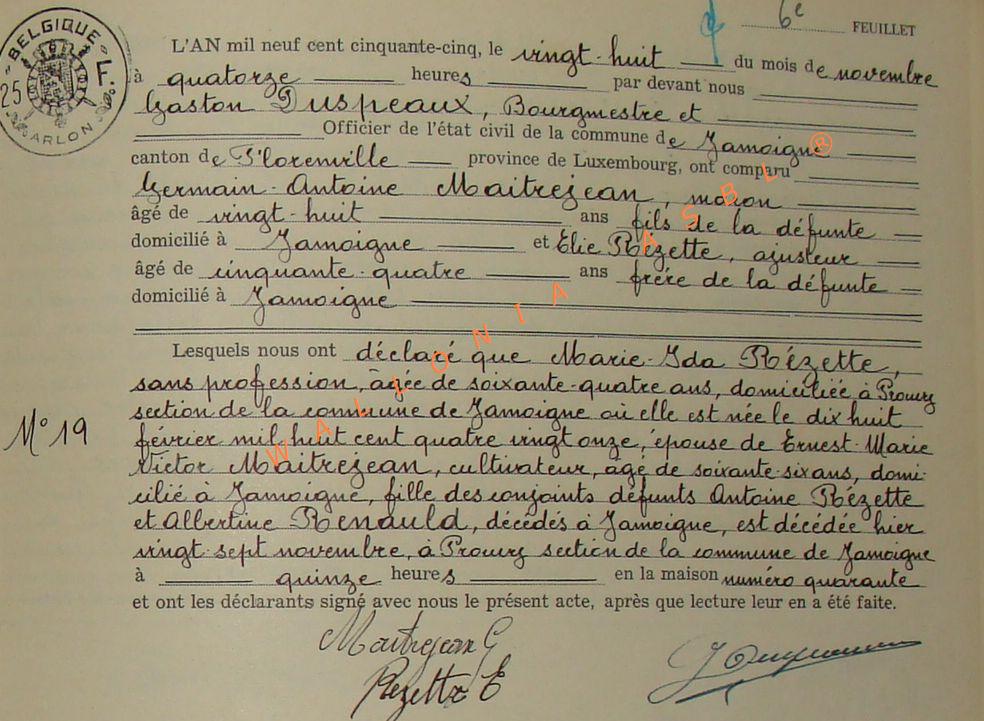 6e FEUILLET
BELGIQUE
25 F.
ARLON
L'AN mil neuf cent cinquante-cinq, le vingt-huit du mois de novembre
à quatorze heures par devant nous
Gaston Duspeaux, Bourgmestre et
Officier de l'état civil de la commune de Jamoigne
canton de Florenville province de Luxembourg, ont comparu
Germain-Antoine Maitrejean, maçon
âgé de vingt-huit ans fils de la défunte
domicilié à Jamoigne et Elie Rézette, ajusteur
âgé de cinquante-quatre ans frère de la défunte
domicilié à Jamoigne
Lesquels nous ont déclaré que Marie-Ida Rézette,
sans profession, âgée de soixante-quatre ans, domiciliée à Prouvy
section de la commune de Jamoigne où elle est née le dix huit
février mil huit cent quatre vingt onze, épouse de Ernest-Marie
Victor Maitrejean, cultivateur, âgé de soixante-six ans, domi-
cilié à Jamoigne, fille des conjoints défunts Antoine Rézette
et Albertine Renauld, décédés à Jamoigne, est décédée hier
vingt-sept novembre, à Prouvy section de la commune de Jamoigne
à quinze heures en la maison numéro quarante
et ont les déclarants signé avec nous le présent acte, après que lecture leur en a été faite.
N° 19
Maitrejean G
Rezette E
WALLONIA ASBL ®